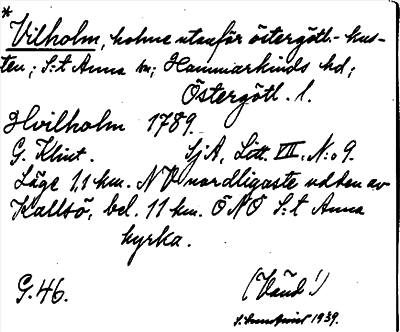 * Vilholm, holme utanför östergötl.-kus-
ten; S:t Anna sn; Hammarkinds hd;
Östergötl. l.
Hvilholm 1789.
G. Klint. SjA, Litt. VII. N:o 9.
Läge 1,1 km. NV nordligaste udden av
Kallsö, bel. 11 km. ÖNÖ S:t Anna
kyrka.
G. 46. (Vänd!)
1939.